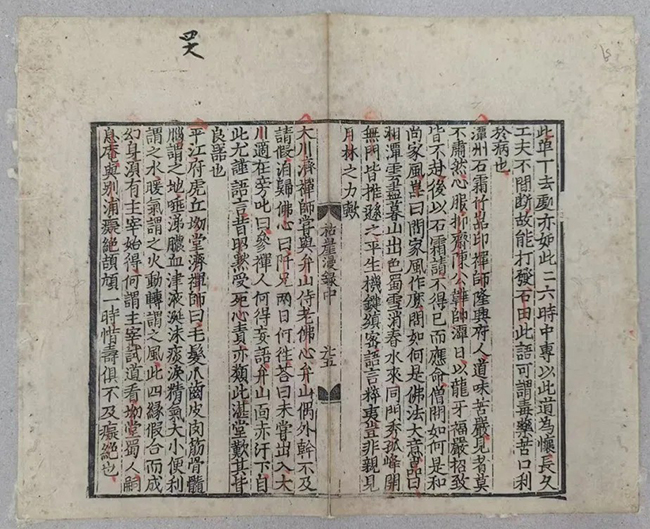 四大
此單丁去處亦如此二六時中專以此道為懷長久
工夫不間斷故能打發石田此語可謂毒藥苦口利
於病也
潭州石霜竹巖印禪師隆興府人道味苦嚴見者莫
不肅然心服齋陳公韡帥潭日以龍牙福嚴招致
皆不赴後以石霜請不得已而應命僧問如何是和
尚家風巖曰問家風作麼問如何是佛法大意巖曰
湘潭雲盡暮山出巴蜀雪消春水來同門秀孤峰開
無門皆推遜之平生機鍵縝密語言粹夷豈非親見
月林之力歟
枯崖漫錄中 十五
大川濟禪師嘗與弁山侍老佛心弁山偶外幹不及
請假洎歸佛心曰阡兄兩日何往荅曰未嘗出入大
川適在旁叱曰參禪人何得妄語弁山面赤汗下自
此尤謹語言昔明受死心責亦類此湛堂歎其皆
良器也
平江府虎丘坳堂濟禪師曰毛髮爪齒皮肉筋骨髓
腦謂之地唾涕膿血津液涎沫痰淚精氣大小便利
謂之水暖氣謂之火動轉謂之風此四緣假合而成
幻身須有主宰始得何謂主宰試道看坳堂蜀人嗣
息庵與別浦癡絕頡頏一時惜壽俱不及癡絕也